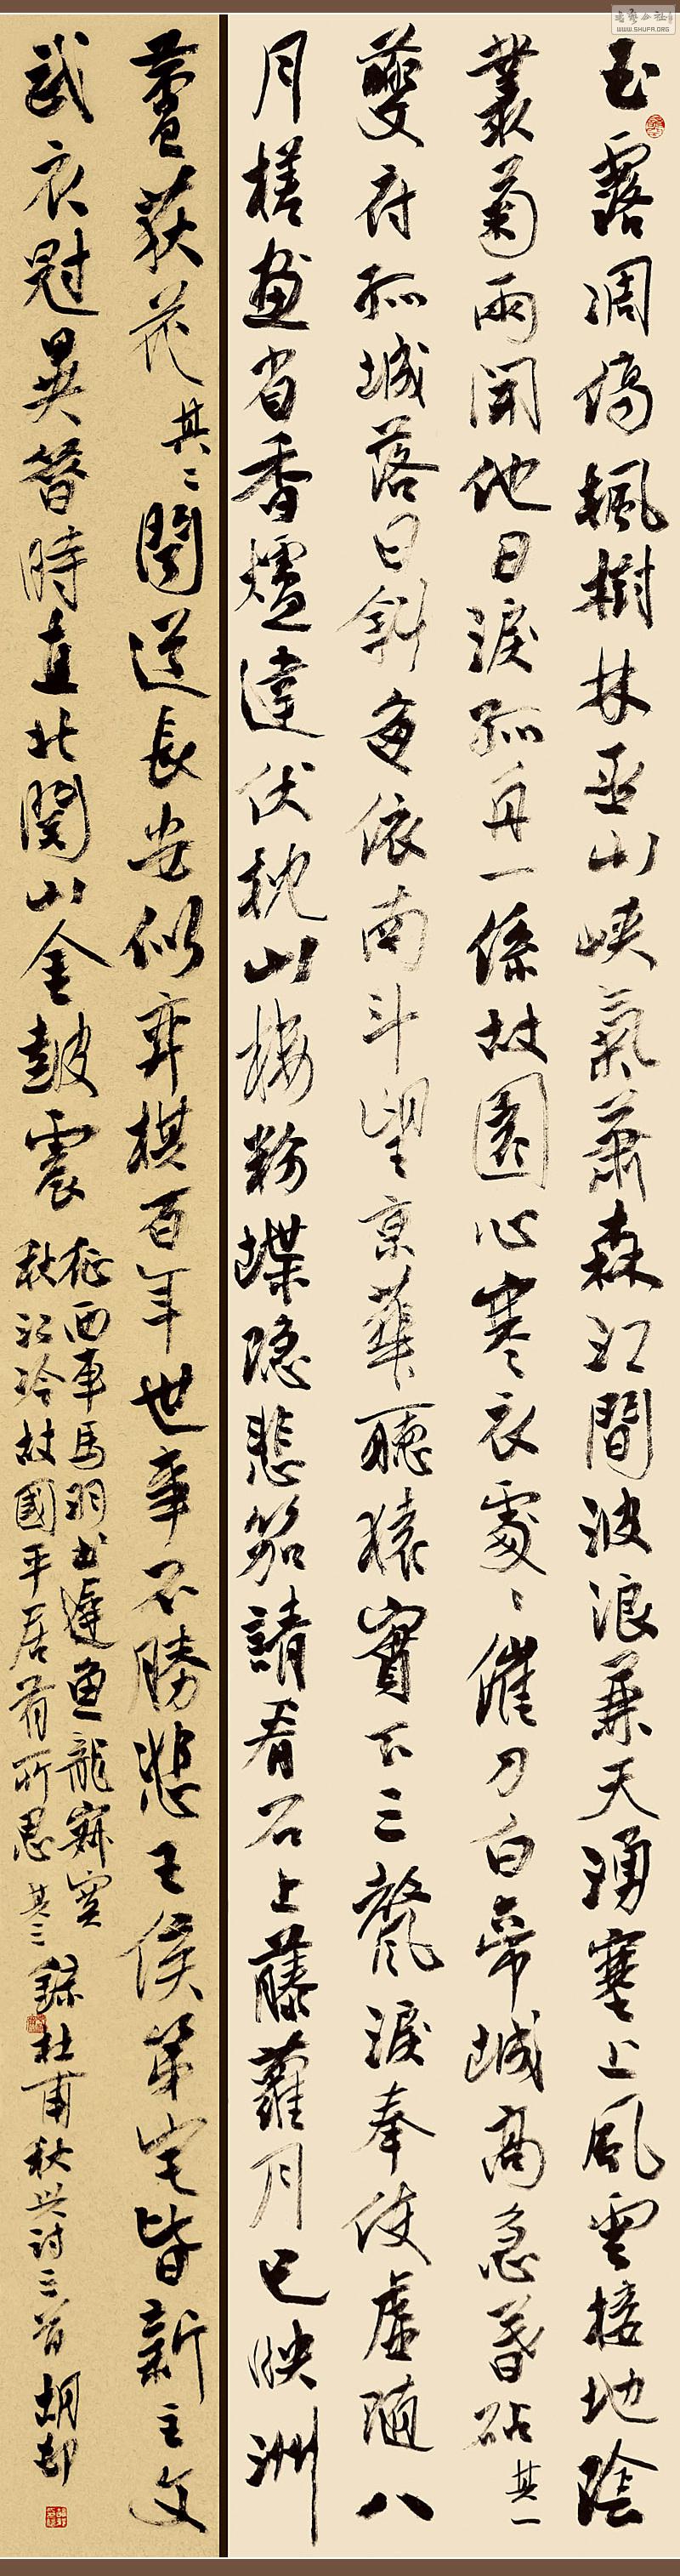 玉露凋傷楓樹林巫山峽氣蕭森江間波浪兼天湧塞上風雲接地陰
叢菊兩開他日淚孤舟一係故園心寒衣處〻催刀白帝城高急暮砧 其一
夔府孤城落日斜每依南斗望京華聽猿實下三聲淚奉使虛隨八
月槎畫省香爐違伏枕山樓粉堞隱悲笳請看石上藤蘿月已映洲
蘆荻花 其二 聞道長安似弈棋百年世事不勝悲王侯第宅皆新主文
武衣冠異昔時直北關山金鼓震
征西車馬羽書遲魚龍寂寞
秋江冷故國平居有所思 其三
錄杜甫秋興詩三首 胡
WWW.SHUFA.ORG